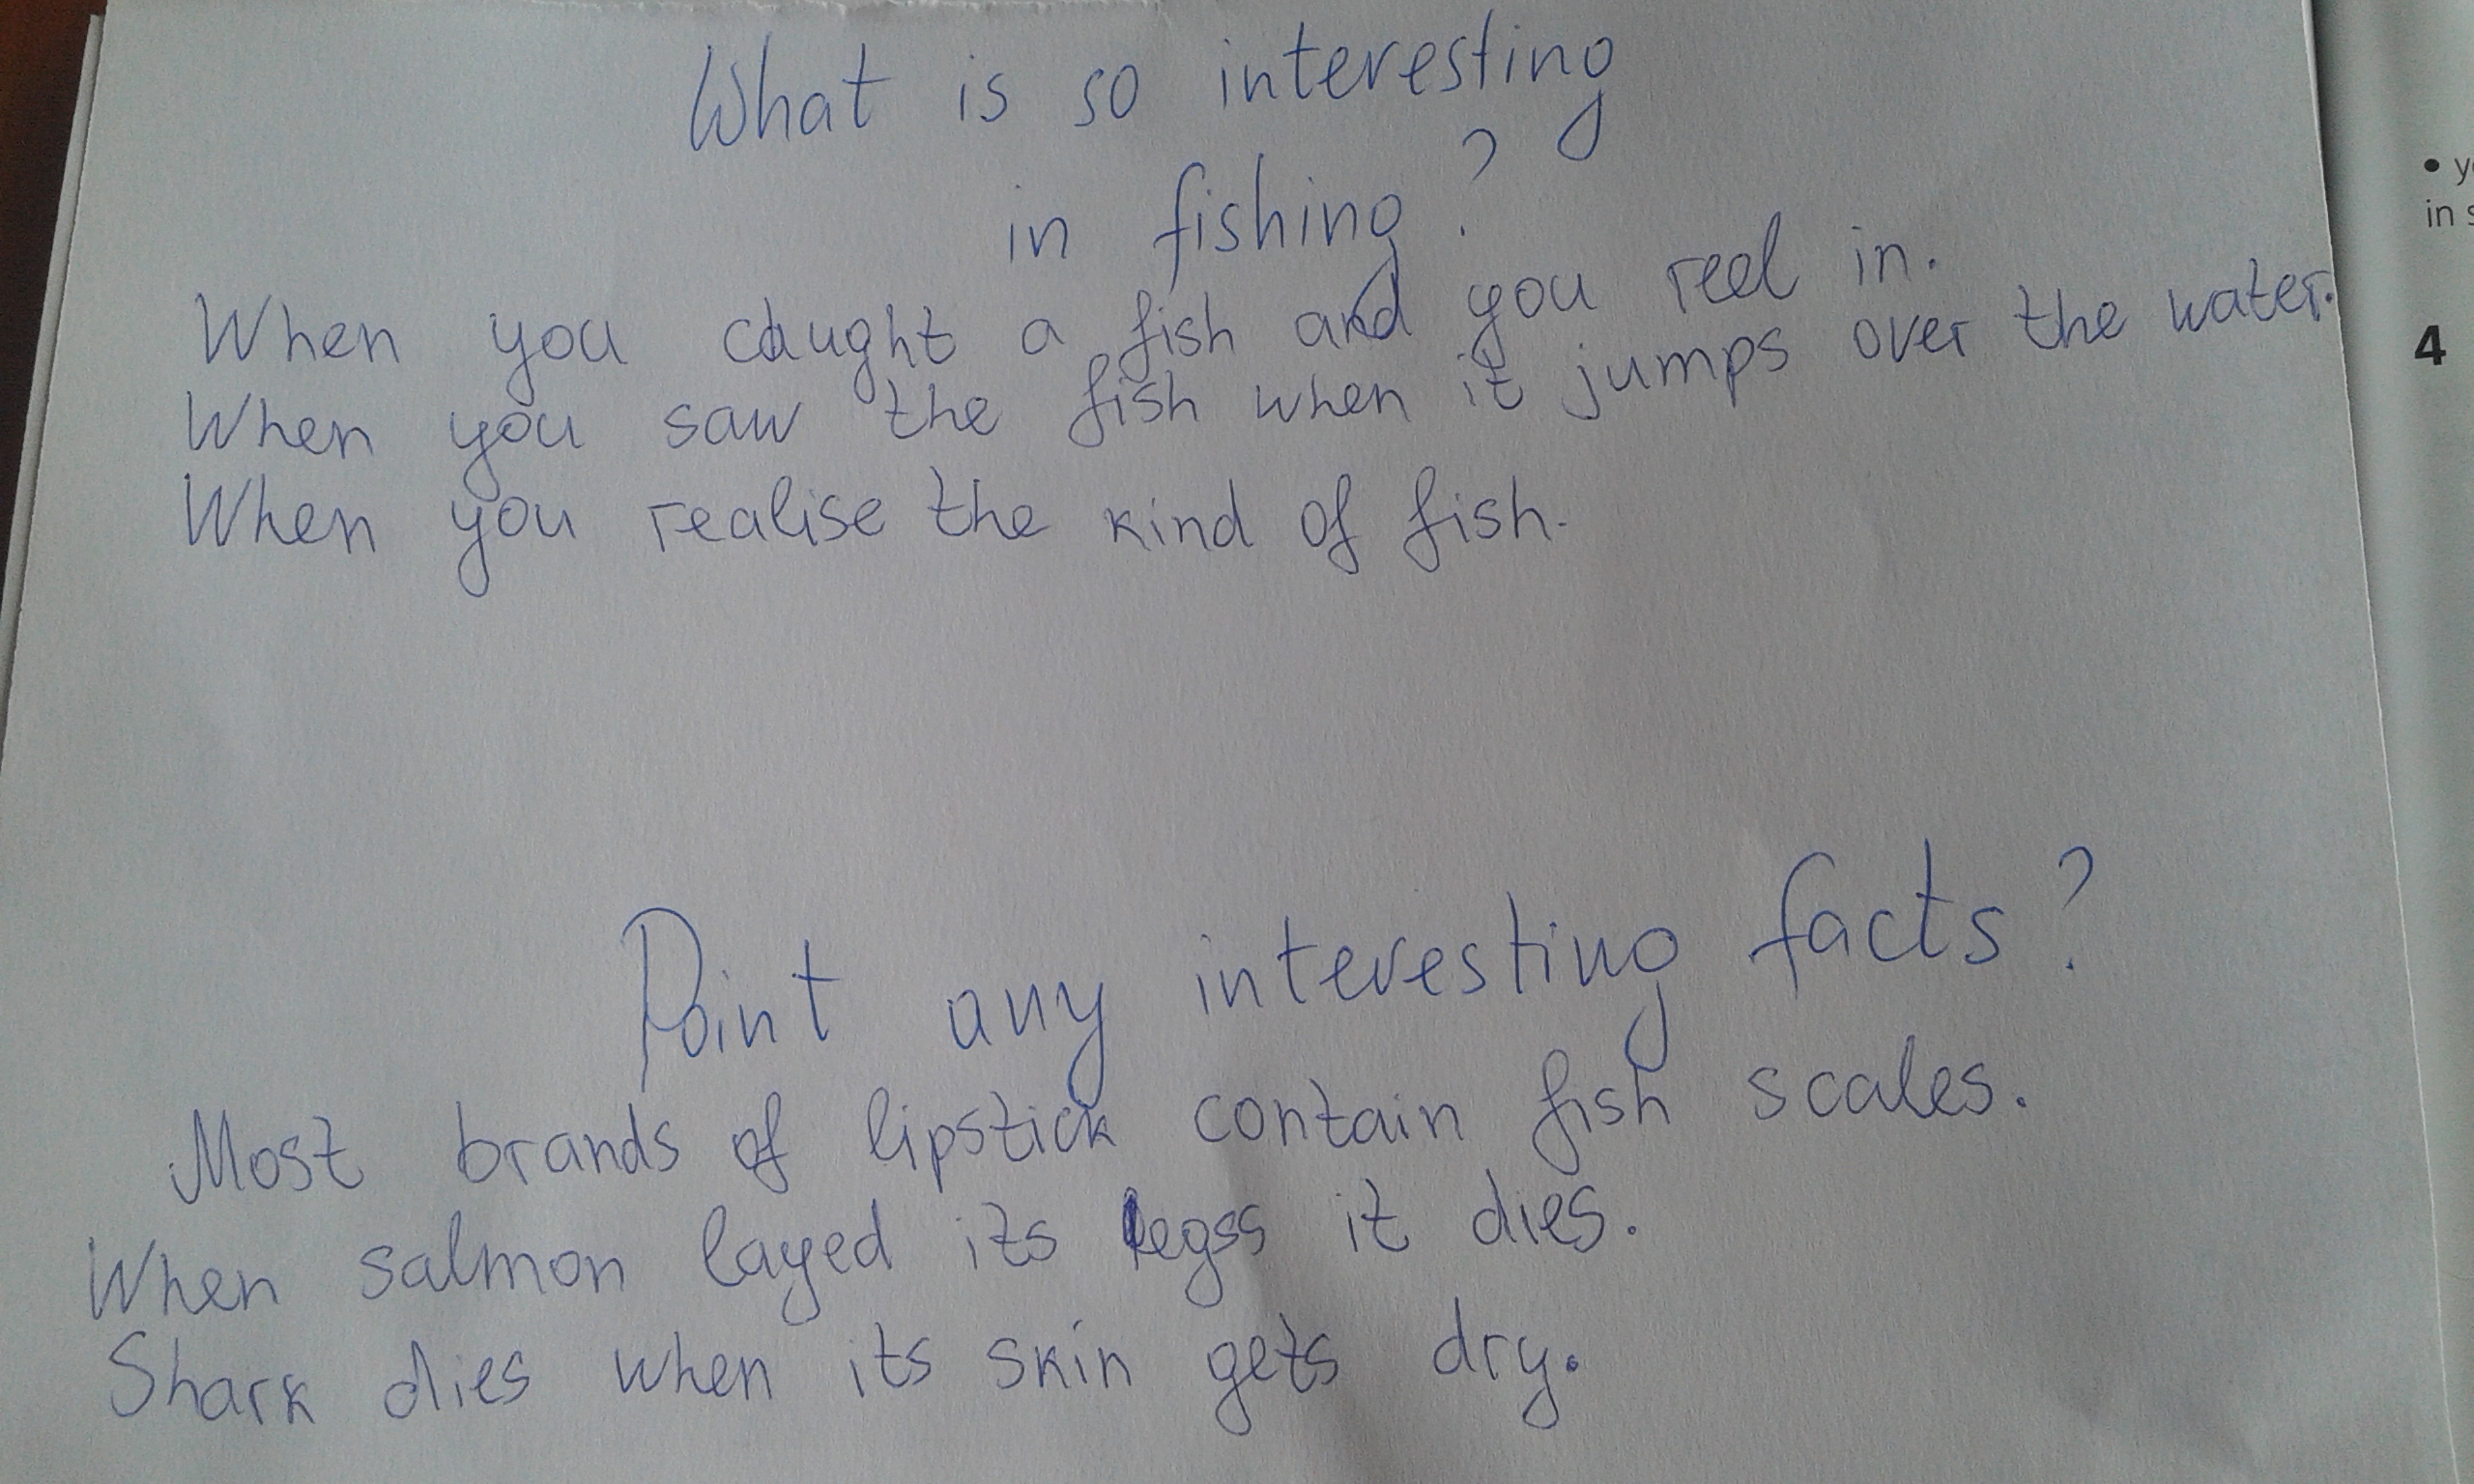 What is so interesting
in fishing?
When you caught a fish and you reel in.
When you saw the fish when it jumps over the water.
When you realise the kind of fish.
Point any interesting facts?
Most brands of lipstick contain fish scales.
When salmon layed its egss it dies.
Shark dies when its skin gets dry.
•
in
4